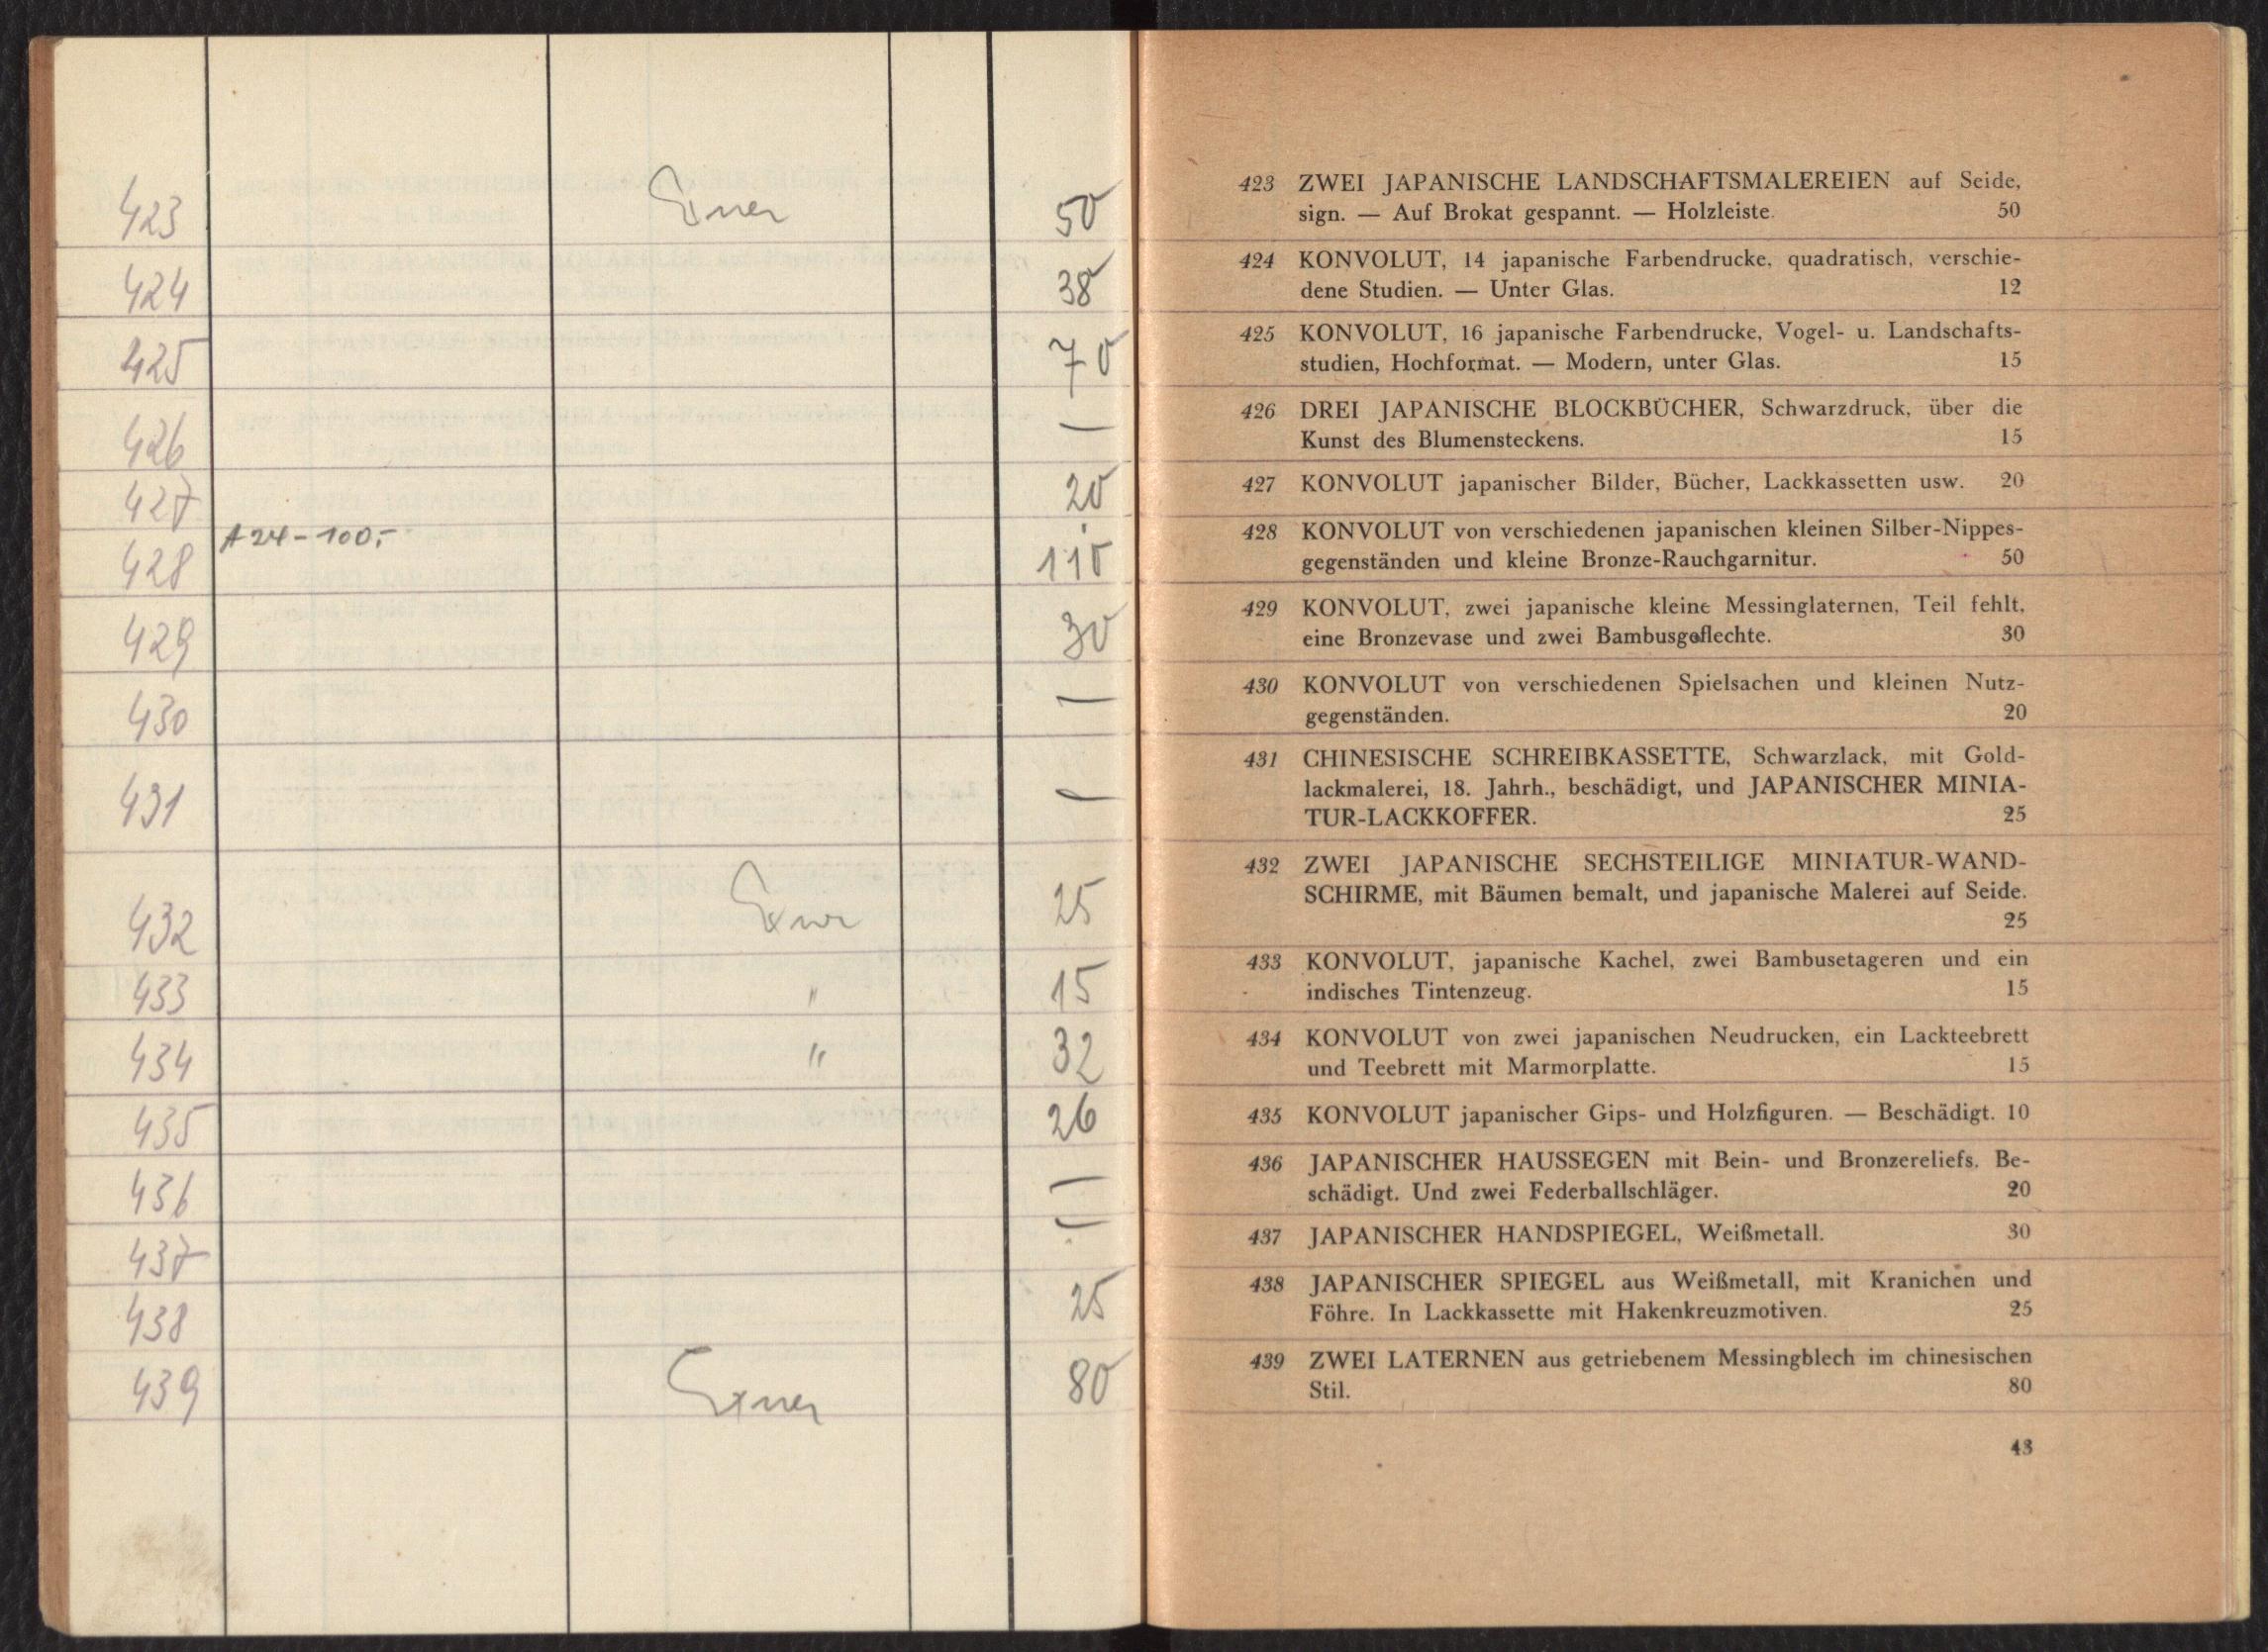 423 Exner 50
424 38
425 70
426 —
427 20
428 A 24 - 100,- 110
429 30
430 —
431 —
432 Exner 25
433 " 15
434 " 32
435 26
436 —
437 —
438 25
439 Exner 80
423 ZWEI JAPANISCHE LANDSCHAFTSMALEREIEN auf Seide,
sign. — Auf Brokat gespannt. — Holzleiste. 50
424 KONVOLUT, 14 japanische Farbendrucke, quadratisch, verschie-
dene Studien. — Unter Glas. 12
425 KONVOLUT, 16 japanische Farbendrucke, Vogel- u. Landschafts-
studien, Hochformat. — Modern, unter Glas. 15
426 DREI JAPANISCHE BLOCKBÜCHER, Schwarzdruck, über die
Kunst des Blumensteckens. 15
427 KONVOLUT japanischer Bilder, Bücher, Lackkassetten usw. 20
428 KONVOLUT von verschiedenen japanischen kleinen Silber-Nippes-
gegenständen und kleine Bronze-Rauchgarnitur. 50
429 KONVOLUT, zwei japanische kleine Messinglaternen, Teil fehlt,
eine Bronzevase und zwei Bambusgeflechte. 30
430 KONVOLUT von verschiedenen Spielsachen und kleinen Nutz-
gegenständen. 20
431 CHINESISCHE SCHREIBKASSETTE, Schwarzlack, mit Gold-
lackmalerei, 18. Jahrh., beschädigt, und JAPANISCHER MINIA-
TUR-LACKKOFFER. 25
432 ZWEI JAPANISCHE SECHSTEILIGE MINIATUR-WAND-
SCHIRME, mit Bäumen bemalt, und japanische Malerei auf Seide.
25
433 KONVOLUT, japanische Kachel, zwei Bambusetageren und ein
indisches Tintenzeug. 15
434 KONVOLUT von zwei japanischen Neudrucken, ein Lackteebrett
und Teebrett mit Marmorplatte. 15
435 KONVOLUT japanischer Gips- und Holzfiguren. — Beschädigt. 10
436 JAPANISCHER HAUSSEGEN mit Bein- und Bronzereliefs. Be-
schädigt. Und zwei Federballschläger. 20
437 JAPANISCHER HANDSPIEGEL, Weißmetall. 30
438 JAPANISCHER SPIEGEL aus Weißmetall, mit Kranichen und
Föhre. In Lackkassette mit Hakenkreuzmotiven. 25
439 ZWEI LATERNEN aus getriebenem Messingblech im chinesischen
Stil. 80
43